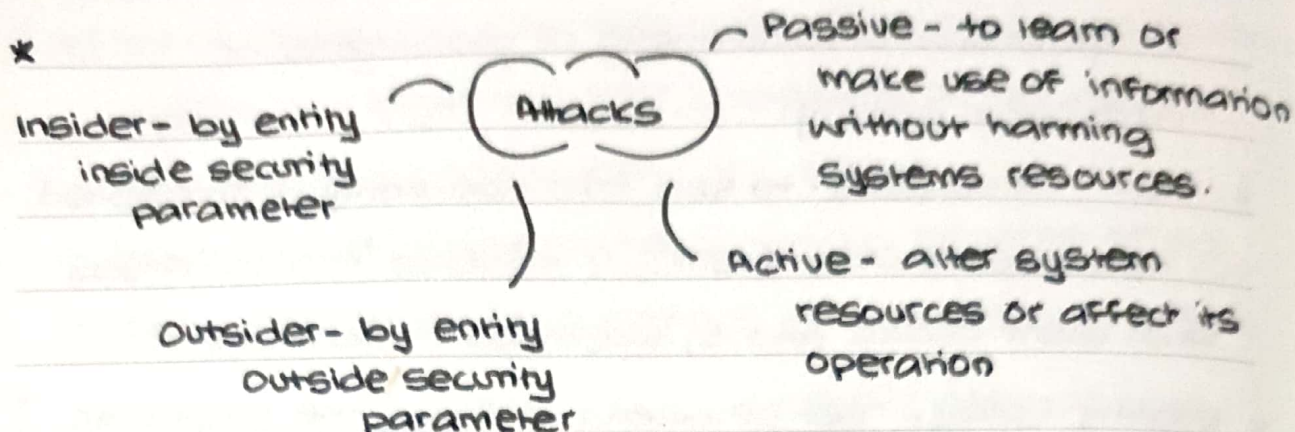 *
Attacks
Passive - to learn or
make use of information
without harming
systems resources.
Insider - by entity
inside security
parameter
Active - alter system
resources or affect its
operation
Outsider - by entity
outside security
parameter